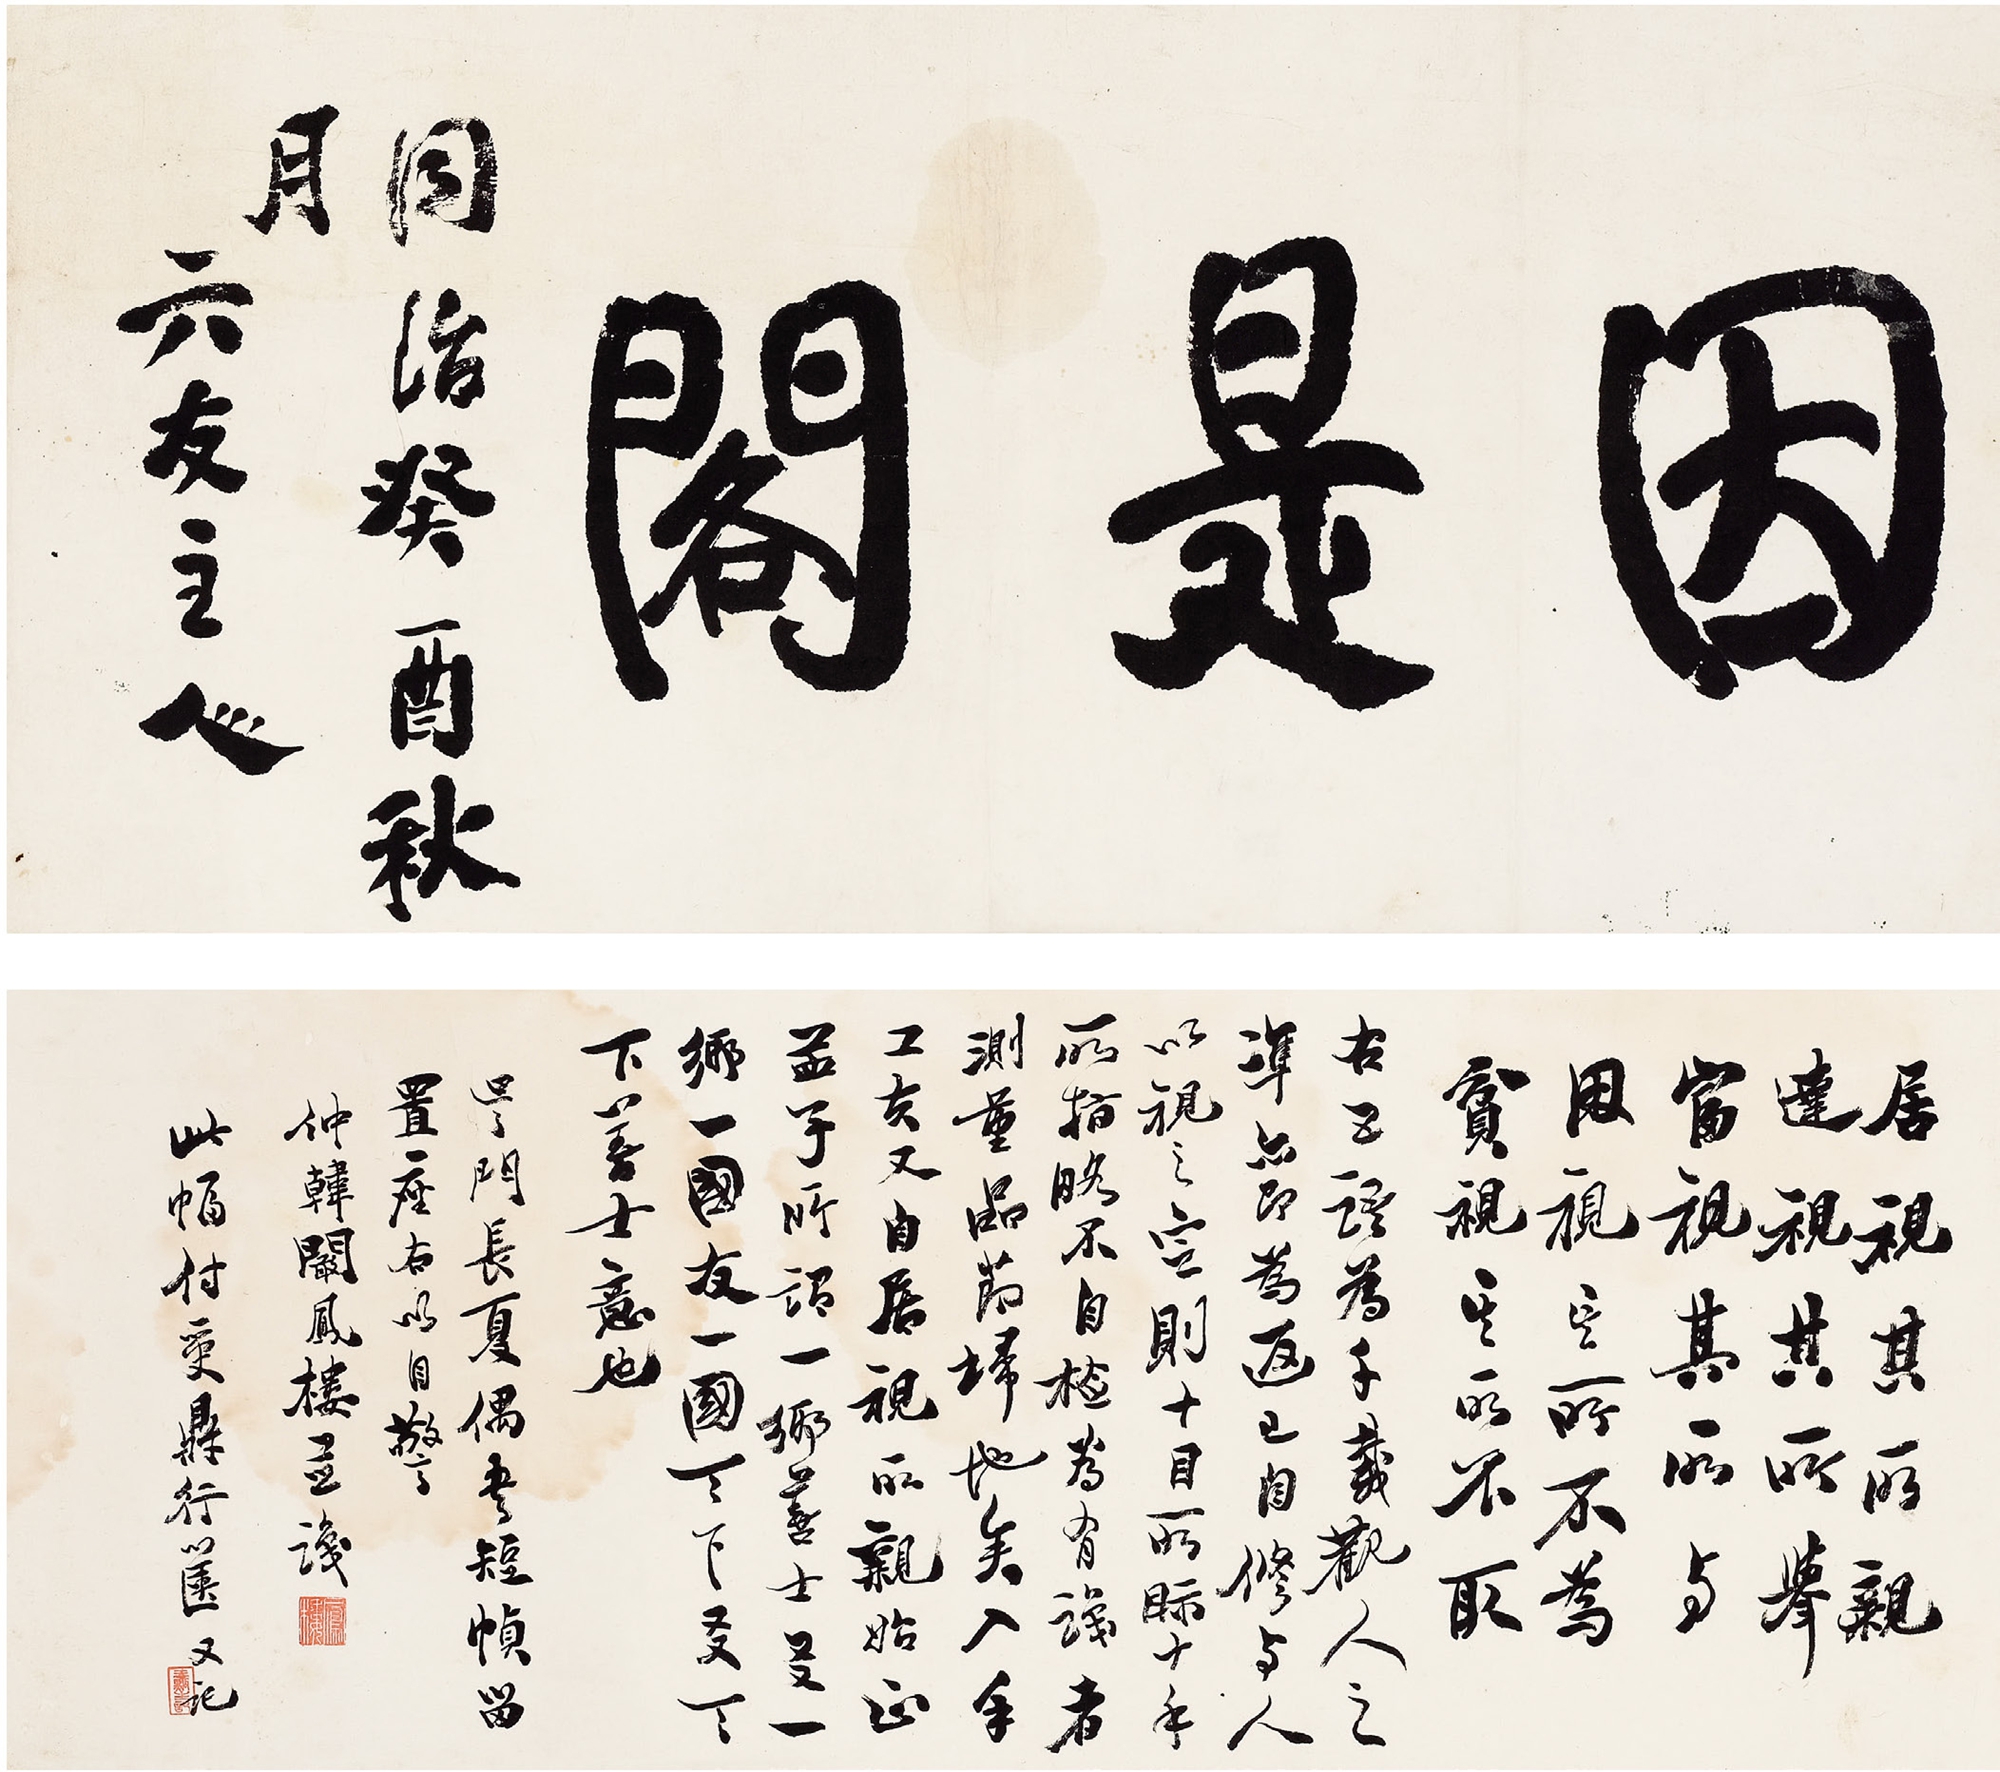 因是閣
同治癸酉秋
月
六友主人
居視其所親
達視其所舉
富視其所与
困視其所不為
貧視其所不取
右五語為千載觀人之
準亦即為返己自修与人
以視之定則十目所眎十手
所指略不自檢為有識者
測量品節掃地矣入手
工夫又自居視所親始正
孟子所謂一鄉善士友一
鄉一國友一國天下友天
下善士意也
長夏偶書短幀留
置座右以自警
仲韓闞鳳樓並識
此幅付夔鼎行匧又記
鳳樓